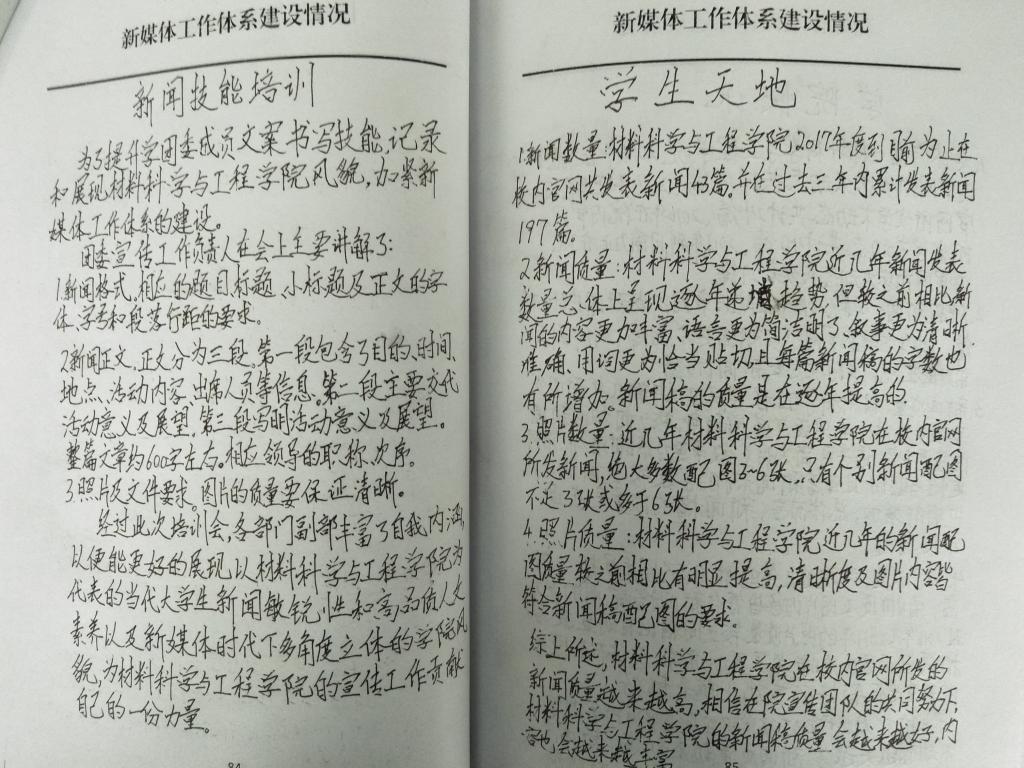 新媒体工作体系建设情况
新闻技能培训
为了提升学团委成员文案书写技能,记录
和展现材料科学与工程学院风貌,加紧新
媒体工作体系的建设。
团委宣传工作负责人在会上主要讲解了:
1.新闻格式,相应的题目标题、小标题及正文的字
体、字号和段落行距的要求。
2.新闻正文,正文分为三段,第一段包含了目的、时间、
地点、活动内容、出席人员等信息。第二段主要交代
活动意义及展望,第三段写明活动意义及展望。
整篇文章约600字左右。相应领导的职称、次序。
3.照片及文件要求。图片的质量要保证清晰。
经过此次培训会,各部门副部丰富了自我内涵,
以便能更好的展现以材料科学与工程学院为
代表的当代大学生新闻敏锐性和高品质人文
素养以及新媒体时代下多角度立体的学院风
貌,为材料科学与工程学院的宣传工作贡献
自己的一份力量。
84
新媒体工作体系建设情况
学生天地
1.新闻数量:材料科学与工程学院2017年度到目前为止在
校内官网共发表新闻43篇,并在过去三年内累计发表新闻
197篇。
2.新闻质量:材料科学与工程学院近几年新闻发表
数量总体上呈现逐年递增趋势,但较之前相比新
闻的内容更加丰富、语言更为简洁明了、叙事更为清晰
准确、用词更为恰当贴切,且每篇新闻稿的字数也
有所增加。新闻稿的质量是在逐年提高的.
3.照片数量:近几年材料科学与工程学院在校内官网
所发新闻,绝大多数配图3~6张,只有个别新闻配图
不足3张或多于6张。
4.照片质量:材料科学与工程学院近几年的新闻配
图质量较之前相比有明显提高,清晰度及图片内容皆
符合新闻稿配图的要求。
综上所述,材料科学与工程学院在校内官网所发的
新闻质量越来越高,相信在院宣告团队的共同努力下,
材料科学与工程学院的新闻稿质量会越来越好,内
容也会越来越丰富
85